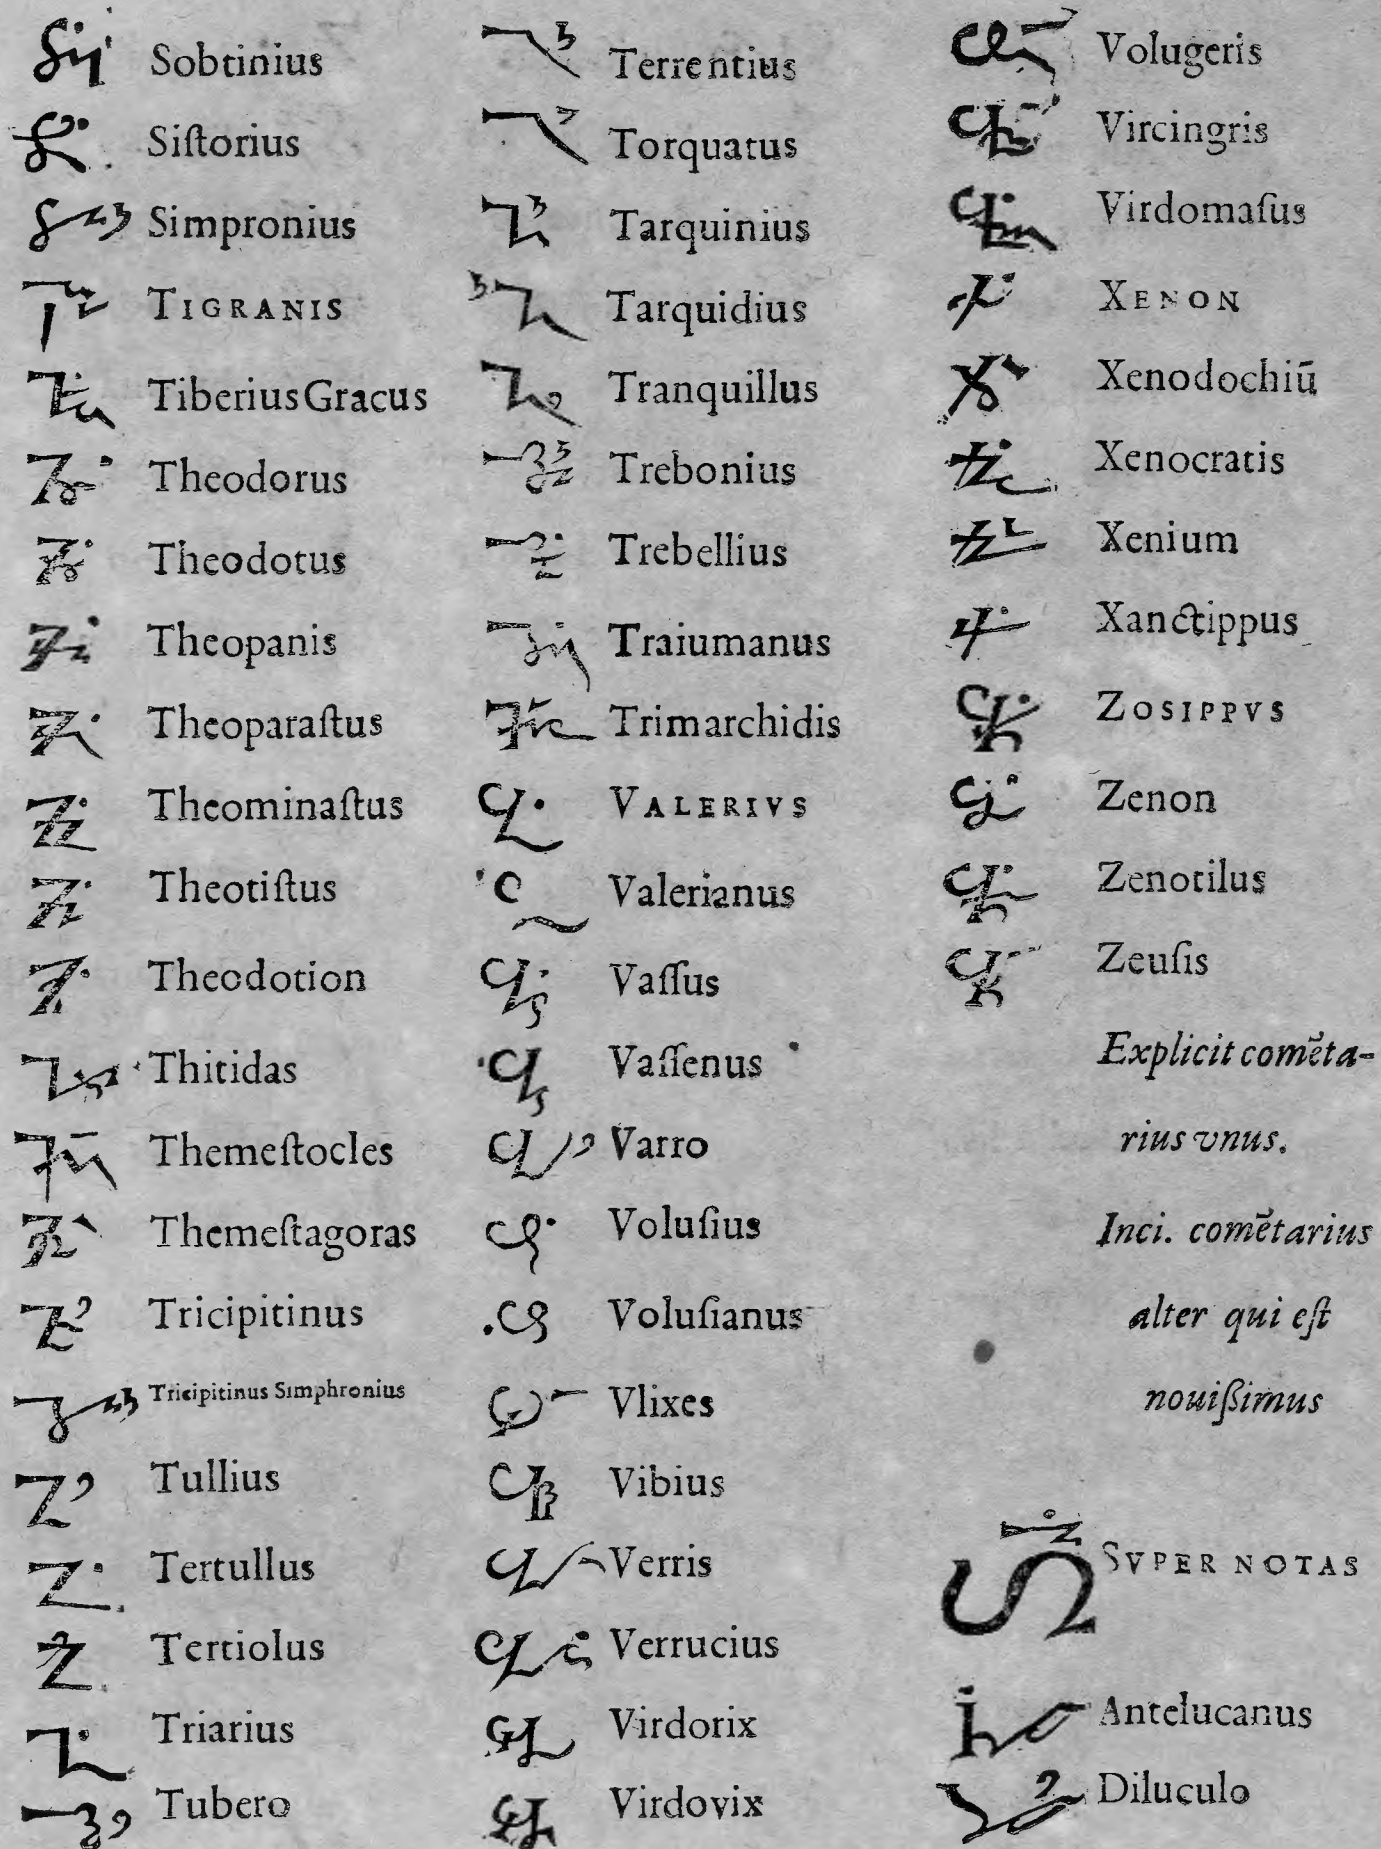 Sobtinius
Siſtorius
Simpronius
TIGRANIS
Tiberius Gracus
Theodorus
Theodotus
Theopanis
Theoparaſtus
Theominaſtus
Theotiſtus
Theodotion
Thitidas
Themeſtocles
Themeſtagoras
Tricipitinus
Tricipitinus Simphronius
Tullius
Tertullus
Tertiolus
Triarius
Tubero
Terrentius
Torquatus
Tarquinius
Tarquidius
Tranquillus
Trebonius
Trebellius
Traiumanus
Trimarchidis
VALERIVS
Valerianus
Vaſſus
Vaſſenus
Varro
Voluſius
Voluſianus
Vlixes
Vibius
Verris
Verrucius
Virdorix
Virdovix
Volugeris
Vircingris
Virdomaſus
XENON
Xenodochiū
Xenocratis
Xenium
Xanctippus
ZOSIPPVS
Zenon
Zenotilus
Zeuſis
Explicit comēta-
rius vnus.
Inci. comētarius
alter qui eſt
nouißimus
SVPER NOTAS
Antelucanus
Diluculo